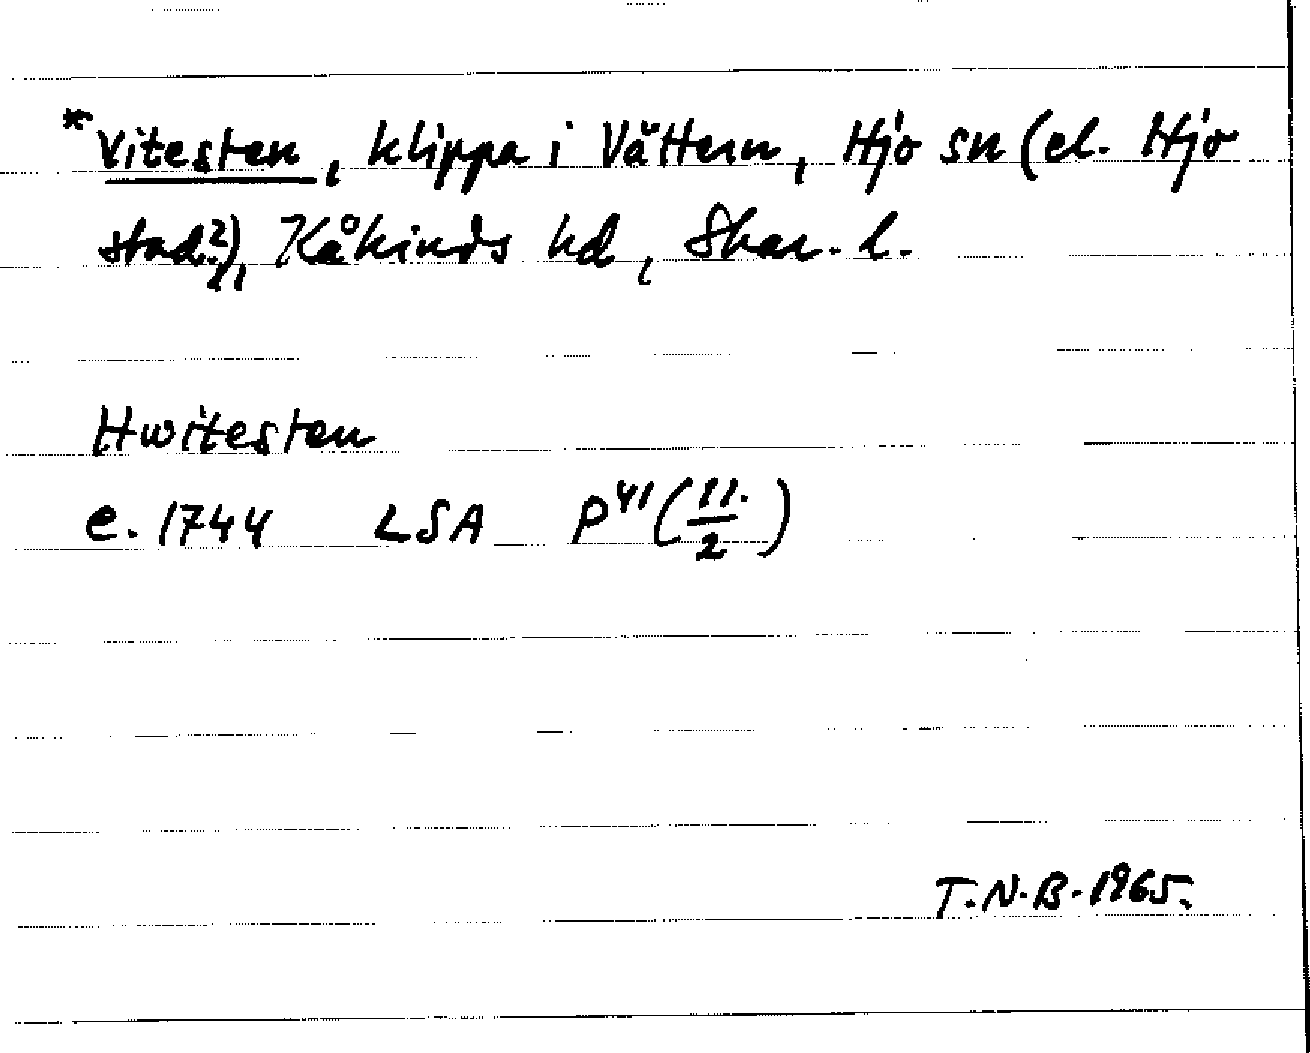 *Vitesten, klippa i Vättern, Hjo sn (el. Hjo
stad?), Kåkinds hd, Skar. l.
Hwitesten
e. 1744 LSA P41 (11./2)
T.N.B. 1965.